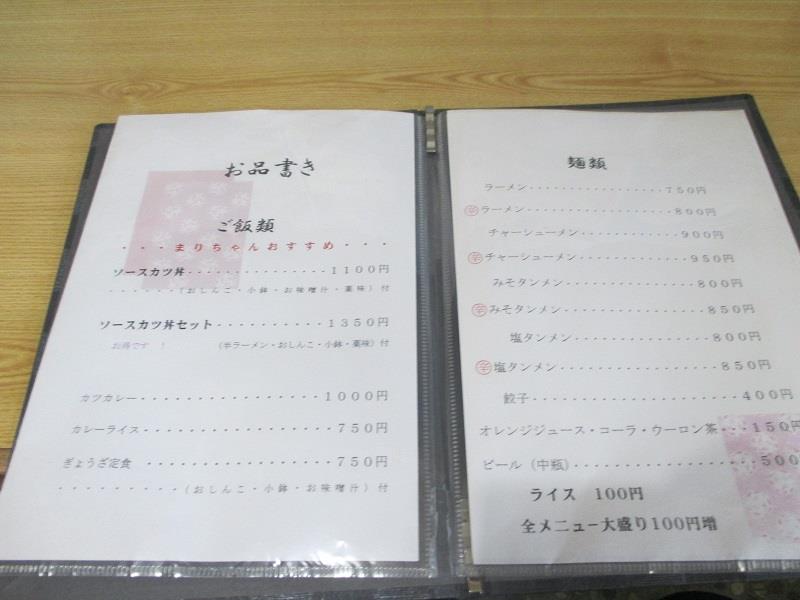 お品書き
ご飯類
・・・まりちゃんおすすめ・・・
ソースカツ丼・・・・・・・・・・・・・・・1100円
・・・・・・(おしんこ・小鉢・お味噌汁・薬味)付
ソースカツ丼セット・・・・・・・・・・1350円
お得です！ (半ラーメン・おしんこ・小鉢・薬味)付
カツカレー・・・・・・・・・・・・・・・・1000円
カレーライス・・・・・・・・・・・・・・・・750円
ぎょうざ定食 ・・・・・・・・・・・・・・・750円
・・・・・・・・・(おしんこ・小鉢・お味噌汁)付
麺類
ラーメン・・・・・・・・・・・・・・・・・750円
辛ラーメン・・・・・・・・・・・・・・・・・・800円
チャーシューメン・・・・・・・・・・・・900円
辛チャーシューメン・・・・・・・・・・・・・950円
みそタンメン・・・・・・・・・・・・・・800円
辛みそタンメン・・・・・・・・・・・・・・・850円
塩タンメン・・・・・・・・・・・・・・800円
辛塩タンメン・・・・・・・・・・・・・・・・850円
餃子・・・・・・・・・・・・・・・・・・400円
オレンジジュース・コーラ・ウーロン茶・・・150円
ビール（中瓶）・・・・・・・・・・・・・・・・500円
ライス 100円
全メニュー大盛り100円増